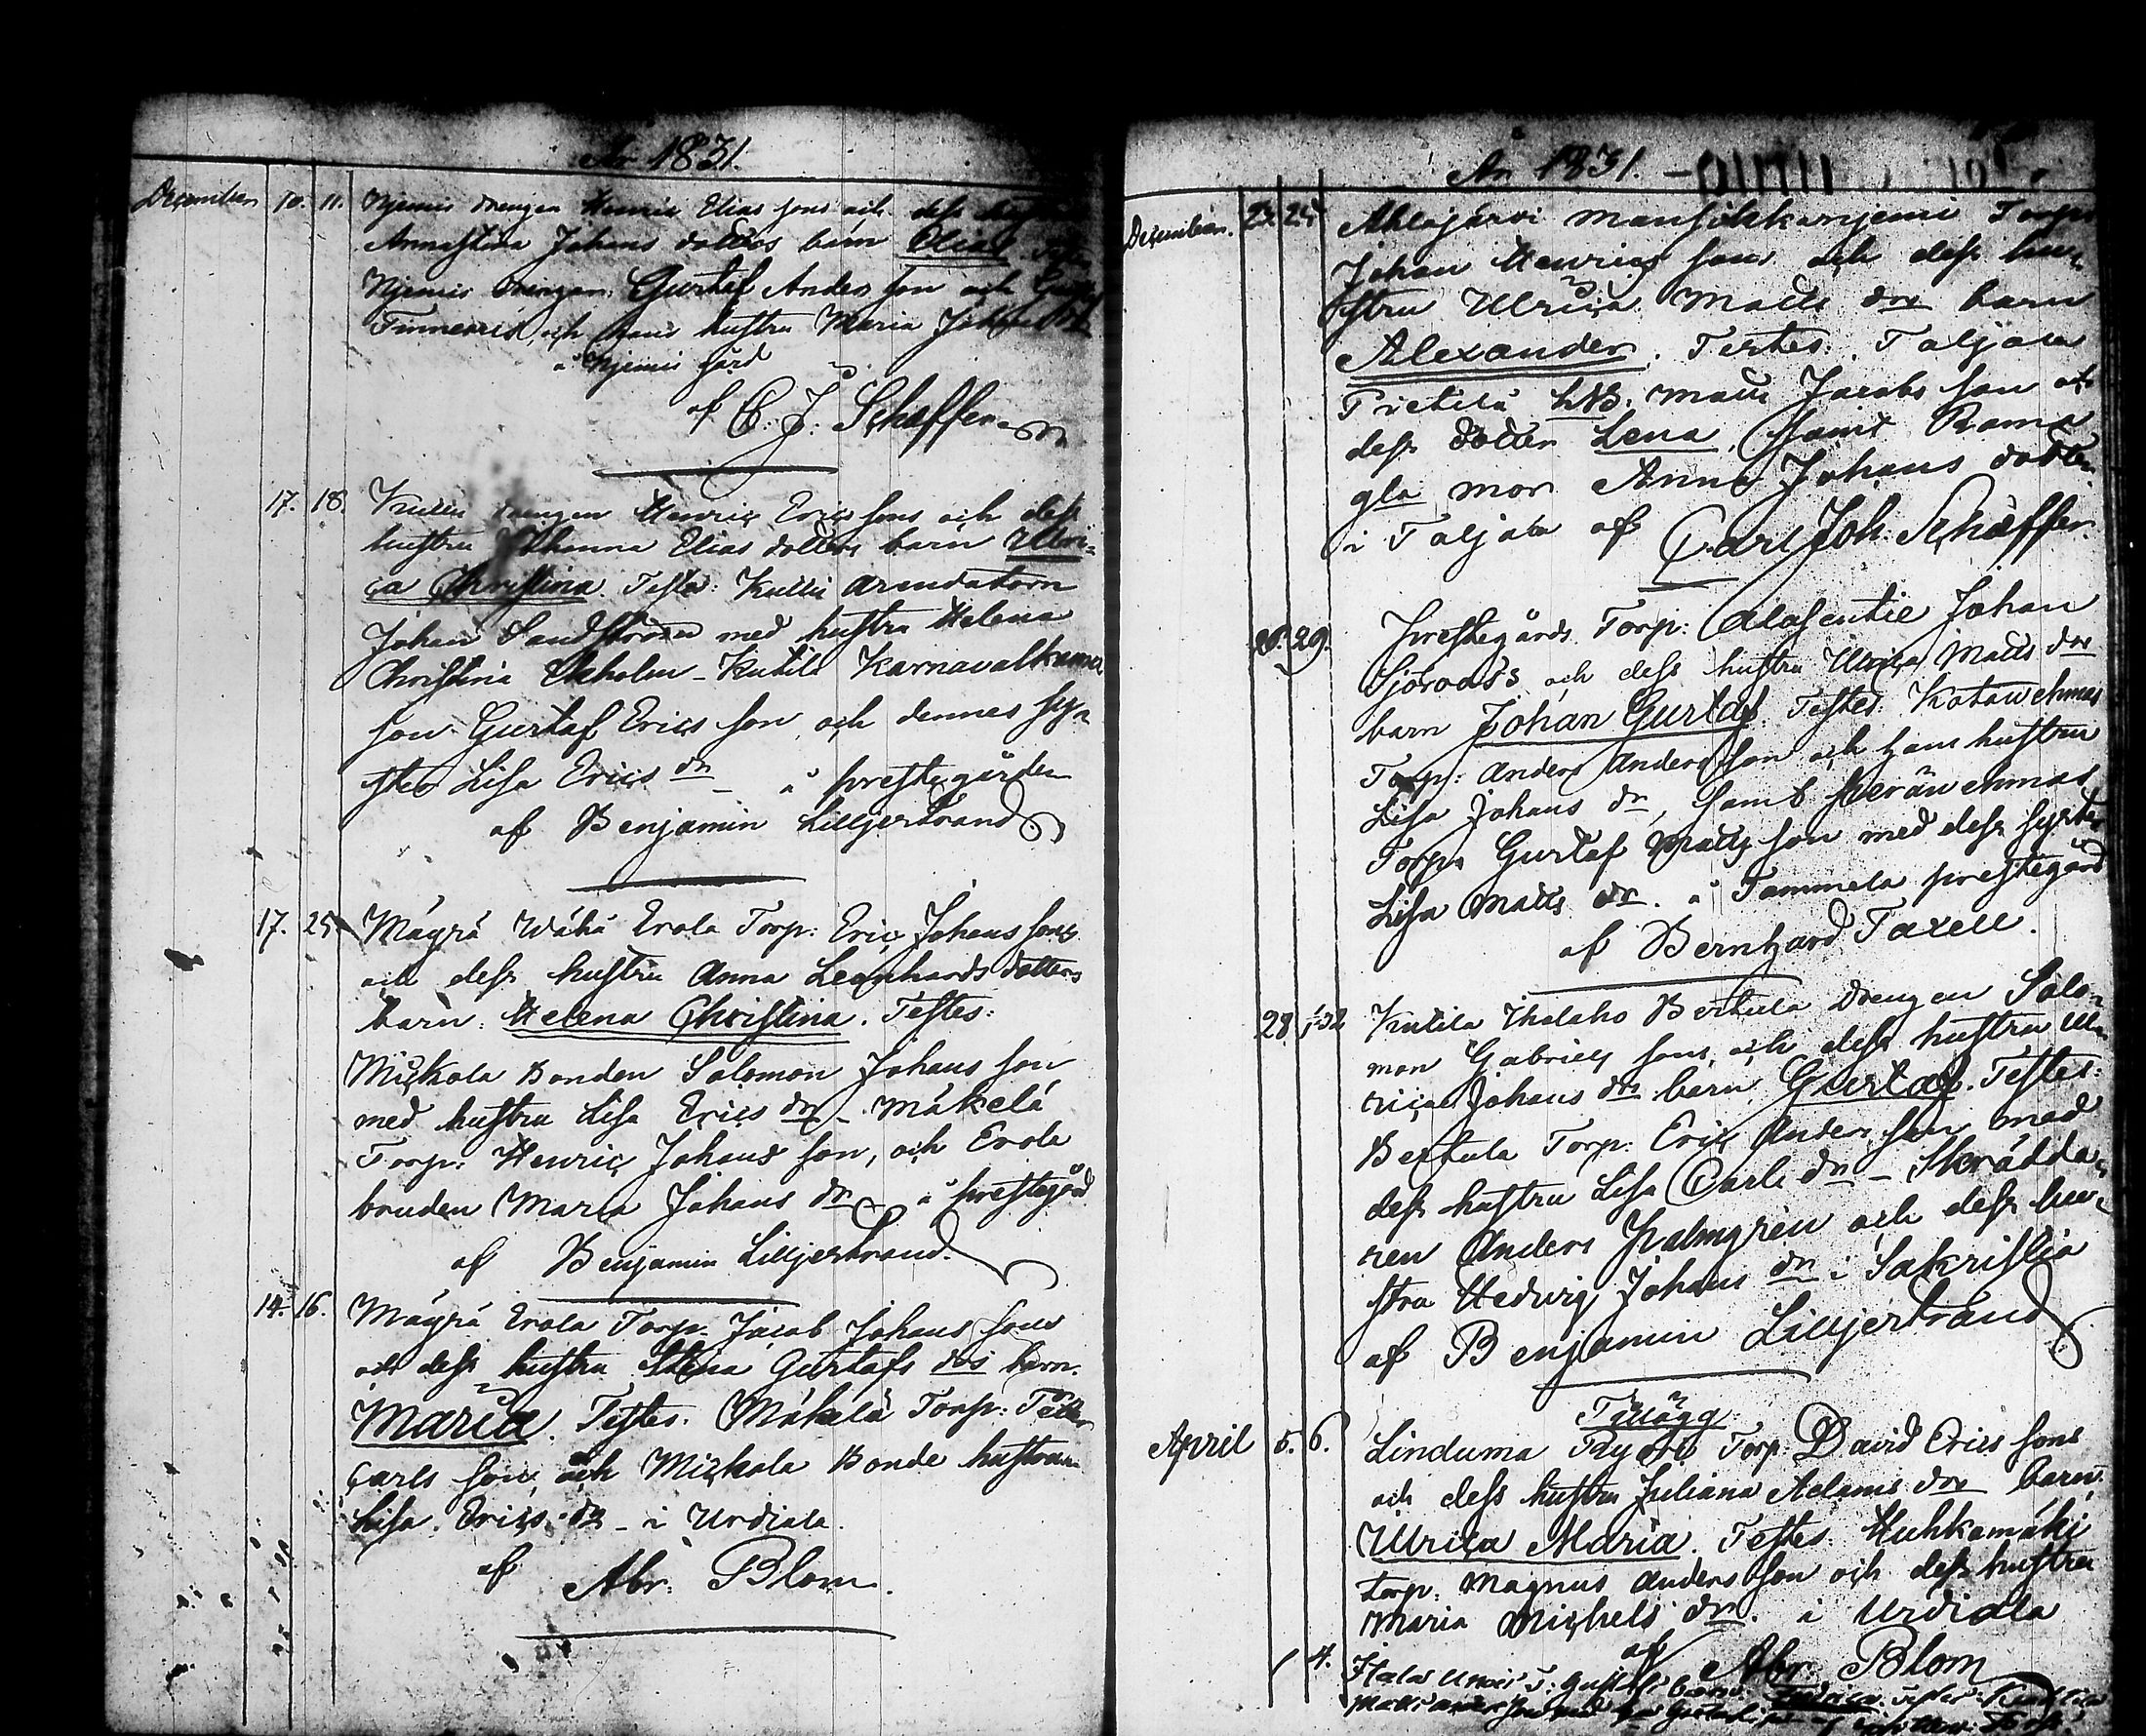 År 1831.
December 10. 11. Njemis drengen Henric Elias sons och dess hustru
Annastina Johans dotters barn Elias. Testes
Njemis drengen Gustaf Anders son och
och hans hustru Maria Johans
å Njemis gård
af C. J. Schæffer
17. 18. Kutila drengen Henric Erics sons och dess
hustru Johanna Elias dotters barn Ulri-
ca Christina. Testes: Kutila Arendatorn
Johan Sandström med hustru Helena
Christina Ekholm - Kutila
son Gustaf Erics son och dennes sy-
ster Lisa Erics dr - å prestegården
af Benjamin Lilljestrand
17. 25. Mäyrä Wähä Erola Torp: Eric Johans sons
och dess hustru Anna Leonhards dotters
barn: Helena Christina. Testes:
Mickola Bonden Salomon Johans son
med hustru Lisa Erics dr - Mäkelä
Torp: Henric Johans son, och Erola
bruden Maria Johans dr - å prestegård
af Benjamin Lilljestrand.
14. 16. Mäyrä Erola Torp. Jacob Johans sons
och dess hustru Stina Gustafs drs barn.
Maria. Testes. Mäkelä Torp: Petter
Carls son, och Mickola Bonde hustrun
Lisa Erics dr - i Urdiala.
af Abr: Blom.
År 1831.
December. 24 25 Ahlajärvi Mansikkanjemi Torp:
Johan Henrics sons och dess hu-
stru Ulrica Matts drs barn
Alexander. Testes: Taljala
Prietilä Matts Jacobs son och
dess dotter Lena, samt
gla mor Anna Johans dotter
i Taljala af Carl Joh: Schæffer.
26. 29. Prestegårds Torp: Alasentie Johan
Sjöroos's och dess hustru Ulrica Matts drs
barn Johan Gustaf. Testes.
Torp: Anders Anders son och hans hustru
Lisa Johans dr, samt
Torp: Gustaf Matts son med dess syster
Lisa Matts dr. å Tammela prestegård
af Bernhard Taxell.
28 1/1 32 Kutila Ihalaho Bertula drengen Salo-
mon Gabriels sons, och dess hustru Ul-
rica Johans drs barn Gustaf. Testes:
Bertula Torp. Eric Anders son med
dess hustru Lisa Carls dr - Skrädda-
ren Anders Palmgren och dess hu-
stru Hedvig Johans dr i Sakristia
af Benjamin Lilljestrand
Tillägg
April 5. 6. Linduma Torp David Erics sons
och dess hustru Juliana Adams drs barn
Ulrica Maria. Testes. Huhkamäki
Torp: Magnus Anders son och dess hustru
Maria Michels dr. i Urdiala
af Abr. Blom
4.